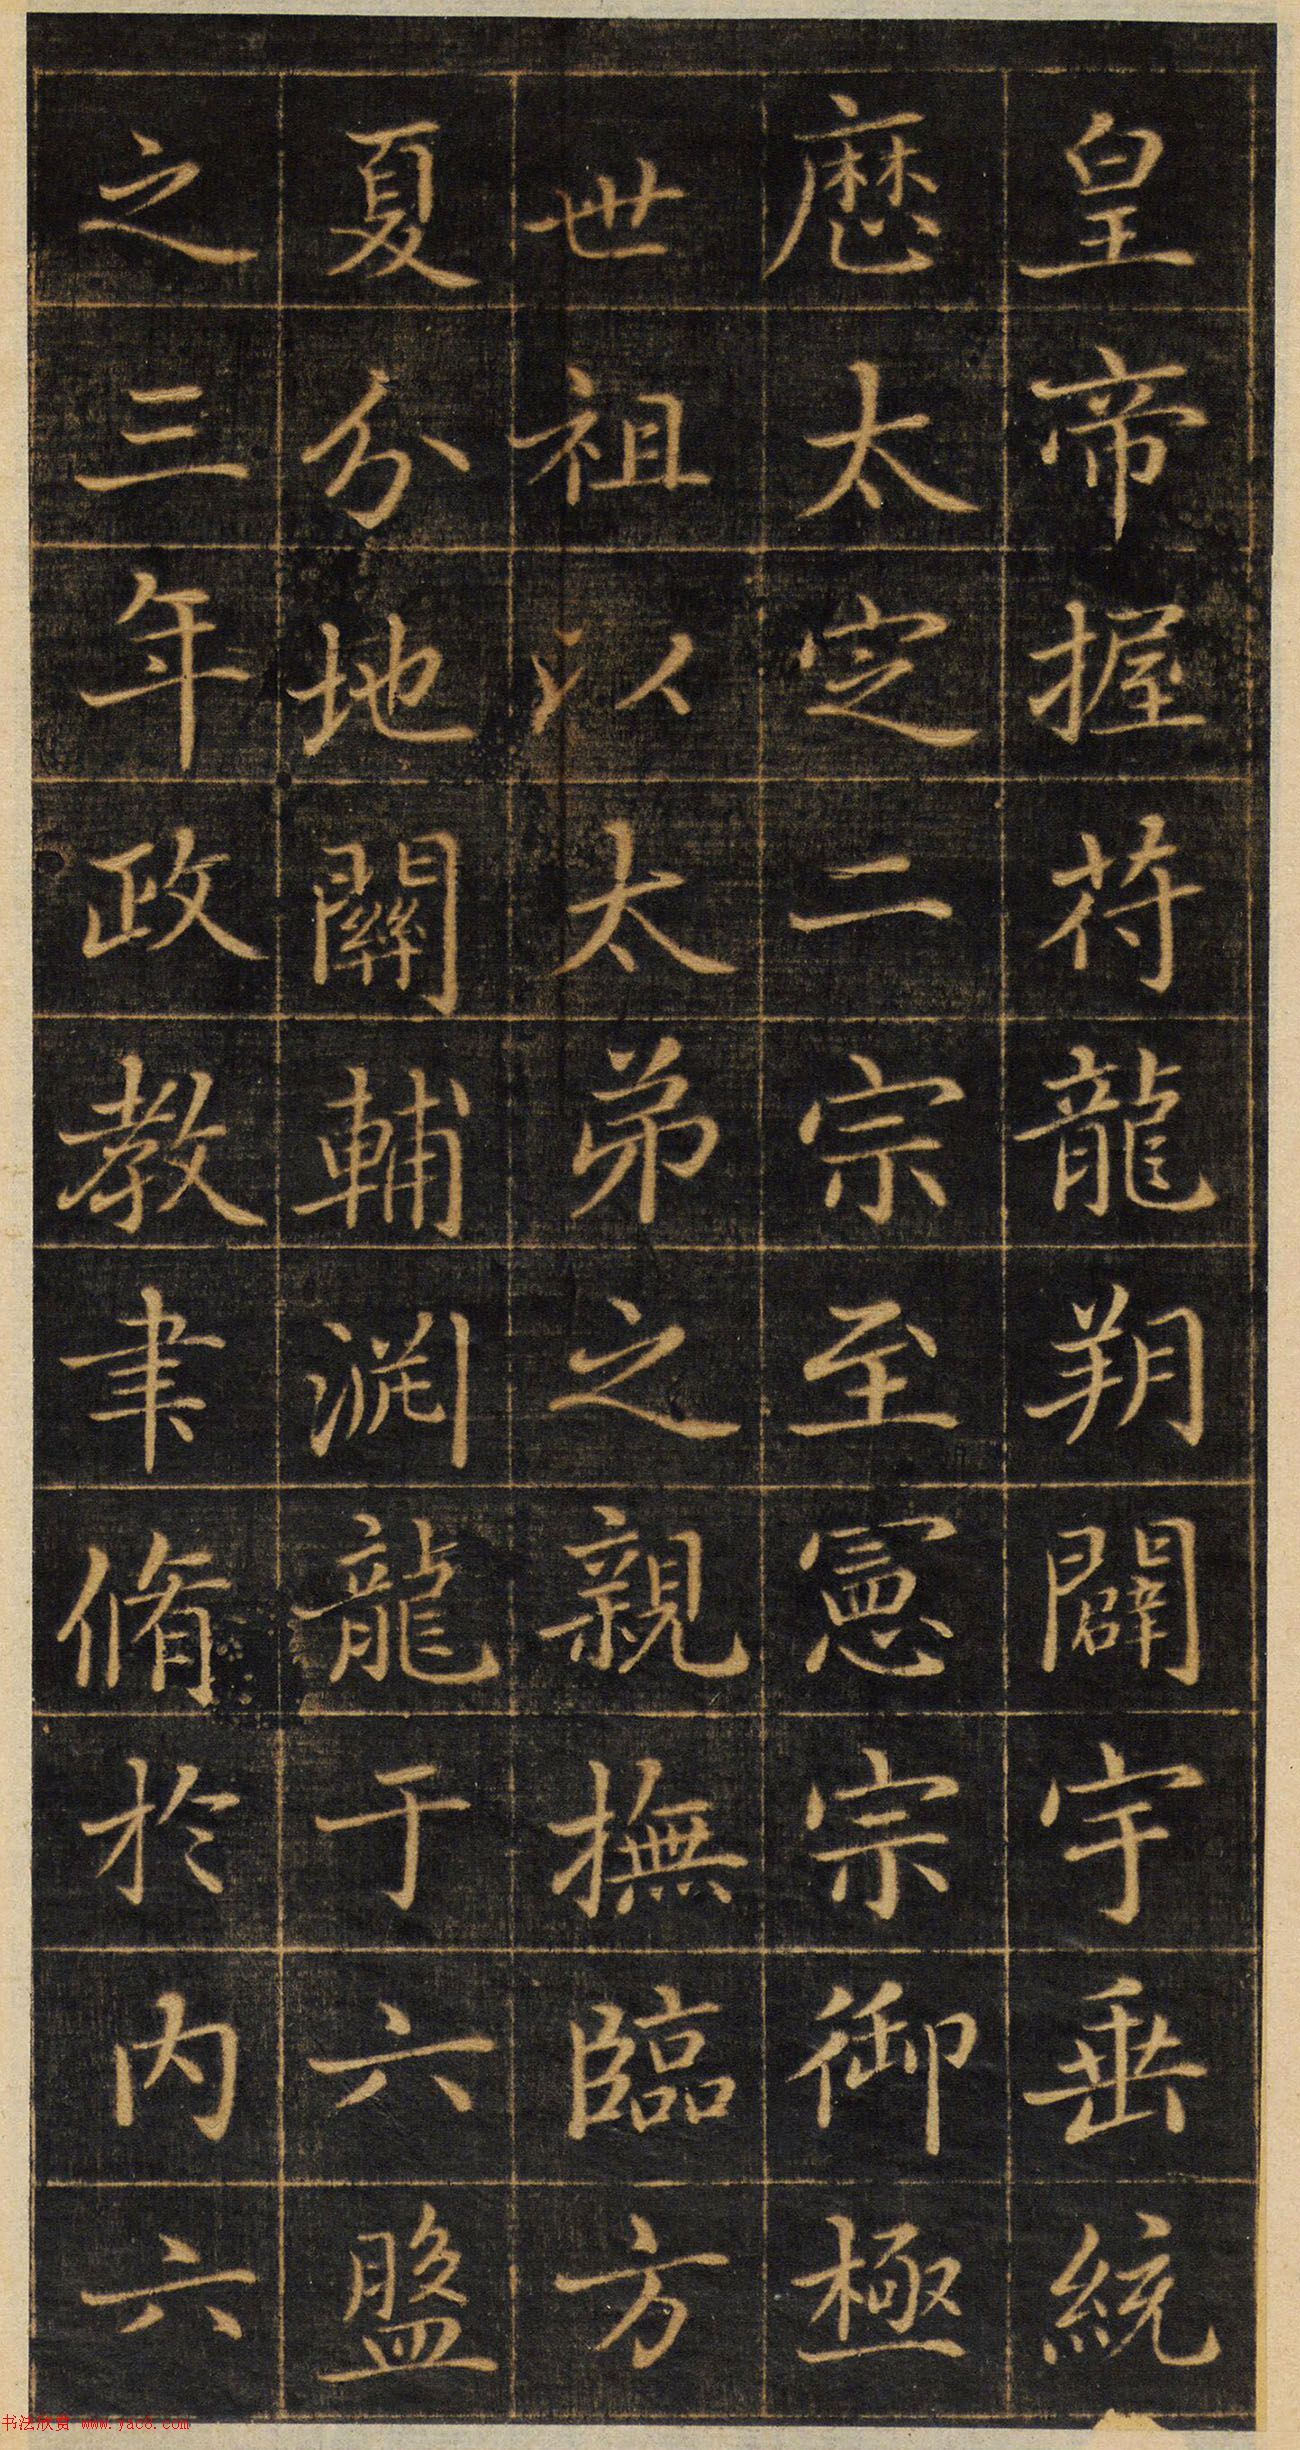 皇帝握符龍朔闢宇垂統
歷太定二宗至憲宗御極
世祖以太弟之親撫臨方
夏分地關輔淵龍于六盤
之三年政教聿脩於內六
书法欣赏 www.yac8.com